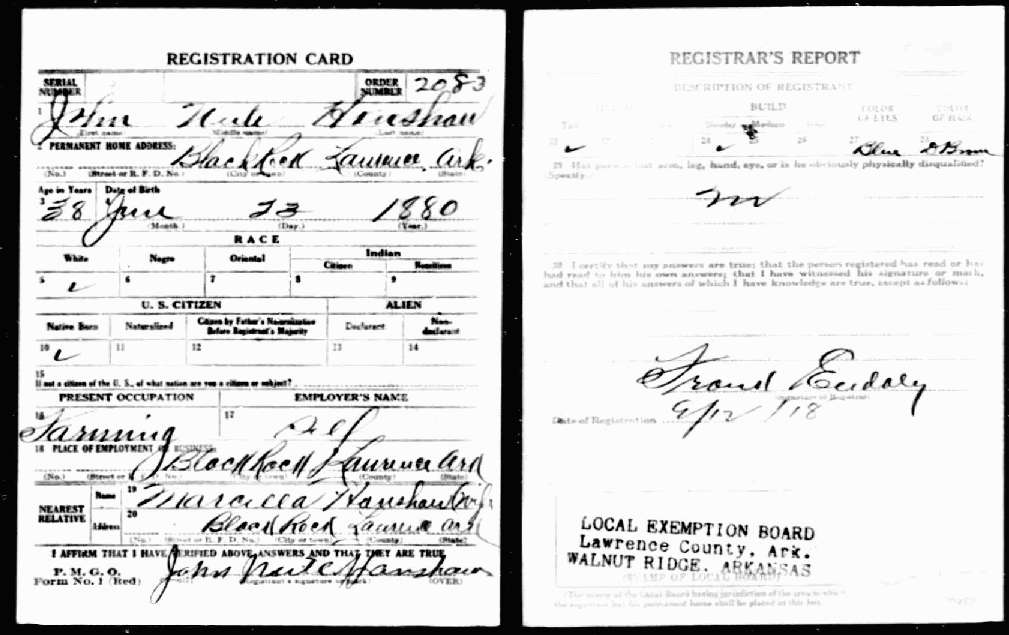 REGISTRATION CARD
SERIAL NUMBER
ORDER NUMBER 2083
1 John Nute Henshaw
(First name) (Middle name) (Last name)
2 PERMANENT HOME ADDRESS:
Black Rock Laurence Ark.
(No.) (Street or R. F. D. No.) (City or town) (County) (State)
Age in Years Date of Birth
3 38 June 23 1880
(Month.) (Day.) (Year.)
RACE
White Negro Oriental Indian
Citizen Noncitizen
5 6 7 8 9
U. S. CITIZEN ALIEN
Native Born Naturalized Citizen by Father's Naturalization Before Registrant's Majority Declarant Non-declarant
10 11 12 13 14
15
If not a citizen of the U. S., of what nation are you a citizen or subject?
PRESENT OCCUPATION EMPLOYER'S NAME
16 Farming 17 Self
18 PLACE OF EMPLOYMENT OR BUSINESS:
Black Rock Laurence Ark
(No.) (Street or R. F. D. No.) (City or town) (County) (State)
NEAREST RELATIVE
Name 19 Marcilla Hanshaw
Address 20 Black Rock Laurence Ark
(No.) (Street or R. F. D. No.) (City or town) (County) (State)
I AFFIRM THAT I HAVE VERIFIED ABOVE ANSWERS AND THAT THEY ARE TRUE
P. M. G. O.
Form No. 1 (Red) John Nute Hanshaw
(Registrant's signature or mark) (OVER)
REGISTRAR'S REPORT
DESCRIPTION OF REGISTRANT
BUILD COLOR OF EYES COLOR OF HAIR
Slender Medium
Blue D Brown
29 Has person lost arm, leg, hand, eye, or is he obviously physically disqualified?
Specify
no
30 I certify that my answers are true; that the person registered has read or has
had read to him his own answers; that I have witnessed his signature or mark,
and that all of his answers of which I have knowledge are true, except as follows:
(Signature of Registrar)
Date of Registration 9/12/18
LOCAL EXEMPTION BOARD
Lawrence County, Ark.
WALNUT RIDGE, ARKANSAS
(STAMP OF LOCAL BOARD)
(The stamp of the Local Board having jurisdiction of the area in which
the registrant has his permanent home shall be placed in this box.